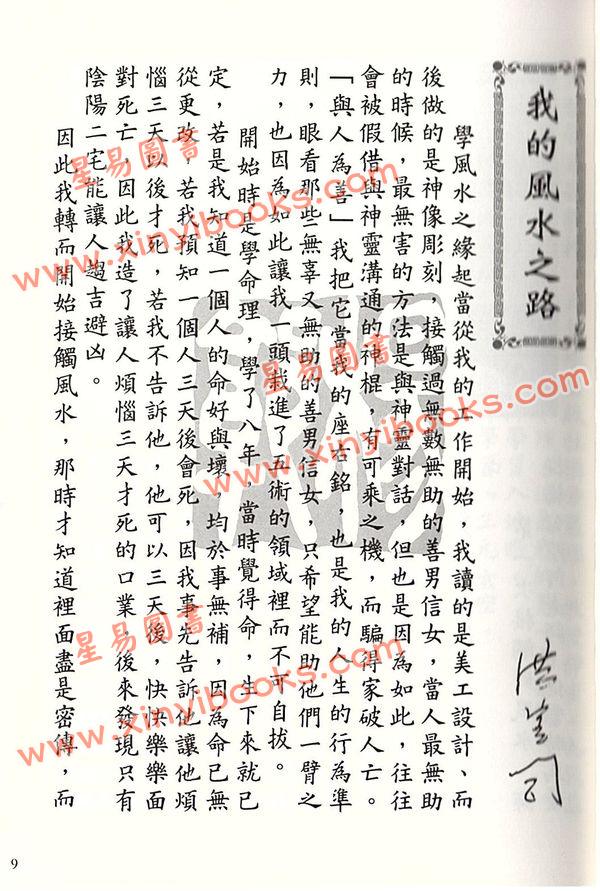 我的風水之路
學風水之緣起當從我的工作開始，我讀的是美工設計、而
後做的是神像彫刻，接觸過無數無助的善男信女，當人最無助
的時候，最無害的方法是與神靈對話，但也是因為如此，往往
會被假借與神靈溝通的神棍，有可乘之機，而騙得家破人亡。
「與人為善」我把它當我的座右銘，也是我的人生的行為準
則，眼看那些無辜又無助的善男信女，只希望能助他們一臂之
力，也因為如此讓我一頭栽進了五術的領域裡而不可自拔。
開始時是學命理，學了八年，當時覺得命，生下來就已
定，若是我知道一個人的命好與壞，均於事無補，因為命已無
從更改，若我預知一個人三天後會死，因我事先告訴他讓他煩
惱三天以後才死，若我不告訴他，他可以三天後，快快樂樂面
對死亡，因此我造了讓人煩惱三天才死的口業，後來發現只有
陰陽二宅能讓人趨吉避凶。
因此我轉而開始接觸風水，那時才知道裡面盡是密傳，而
9
星易圖書
www.xinyibooks.com
星易圖書
www.xinyibooks.com
星易圖書
www.xinyibooks.com